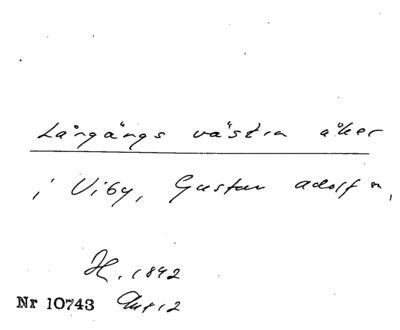 Långängs västra åker
i Viby, Gustav adolf n,
H. 1892
Nr 10743